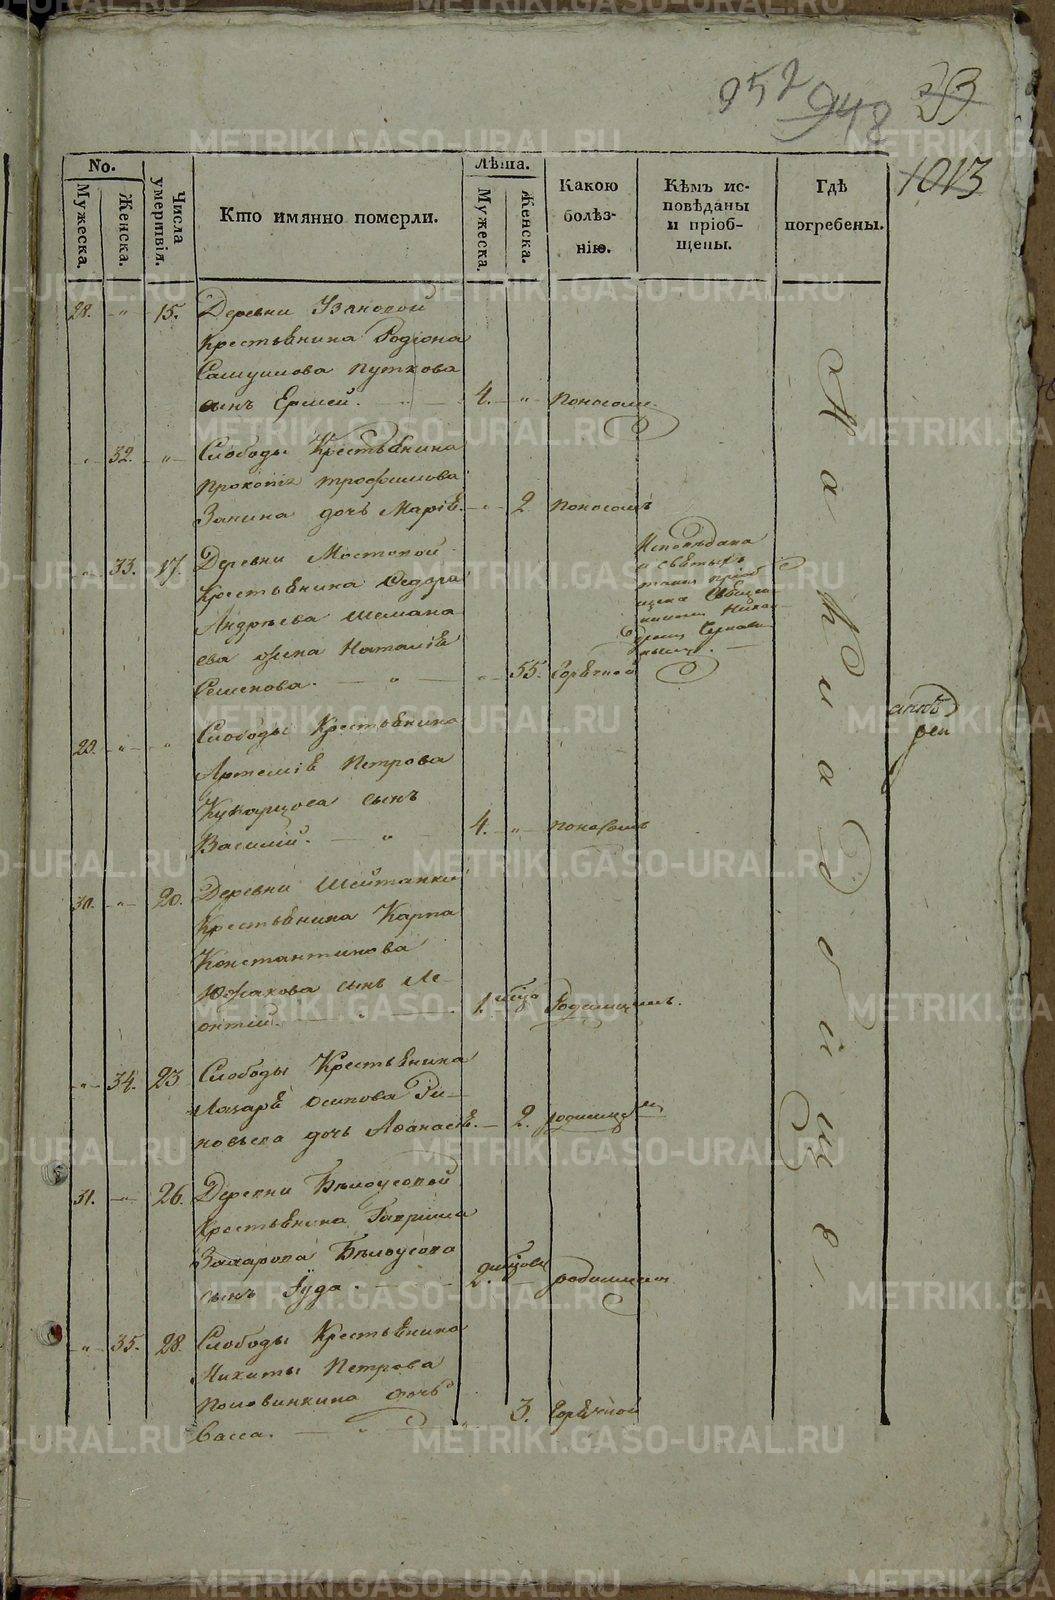 952
948
33
1013
No.
Мужеска.
Женска.
Числа умертвія.
Кто имянно померли.
Лѣта.
Мужеска.
Женска.
Какою болѣз-
нію.
Кѣмъ ис-
повѣданы
и пріоб-
щены.
Гдѣ
погребены.
28. -"- 15. Деревни
Крестьянина Родіона
Самуилова Путкова
сынъ Ермей. 4. -"- поносомъ.
-"- 32. -"- Слободы Крестьянина
Прокопіа Трофимова
Занина дочь Маріѣ. -"- 2 поносомъ
-"- 33. 17. Деревни Мостовой
Крестьянина Федора
Андрѣева
ева жена Наталіѣ
Семенова. -"- 55. Горячкой
Исповѣдана
и святыхъ
таинъ приоб
щена Священ
никомъ
29. -"- -"- Слободы Крестьянина
Артеміѣ Петрова
Кукарцова сынъ
Василій. 4. -"- поносомъ
30. -"- 20. Деревни Шейтанки
Крестьянина Карпа
Константинова
Южакова сынъ Ле-
онтій. 1. мѣсца Родимцемъ.
-"- 34. 23 Слободы Крестьянина
Лазарѣ Осипова
дочь Афанасіѣ. - 2. родимцемъ
31. -"- 26. Деревни Бѣлоусовой
Крестьянина Гаврила
Захарова Бѣлоусова
сынъ Іуда. 2. родимцемъ
-"- 35. 28. Слободы Крестьянина
Никиты Петрова
Половинкина дочь
Васса. 3. Горячкой
На кладбищѣ
METRIKI.GASO-URAL.RU